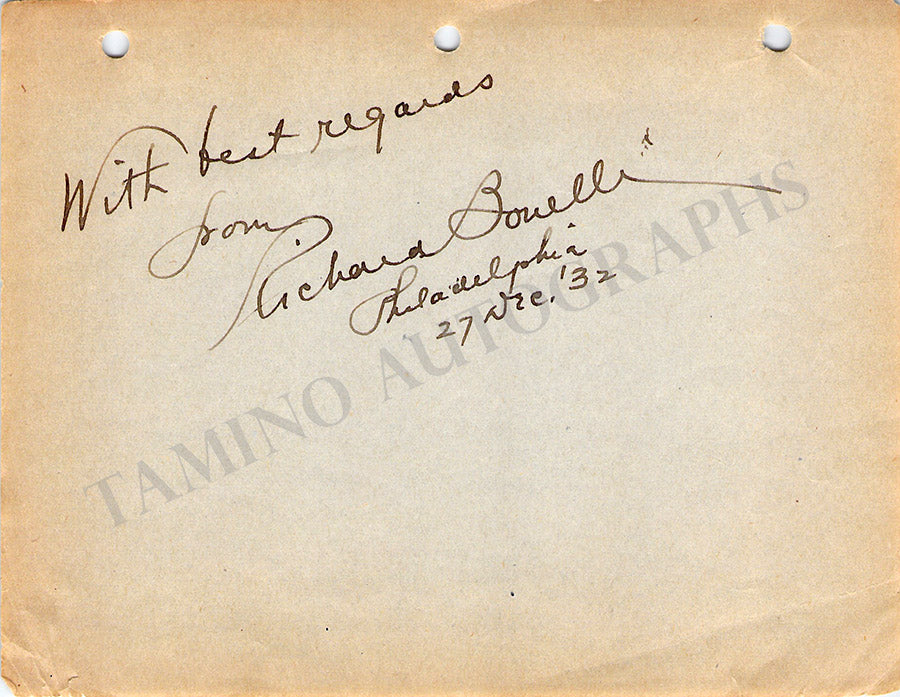 With best regards
from
Richard Bonelli
Philadelphia
27 Dec. '32
TAMINO AUTOGRAPHS